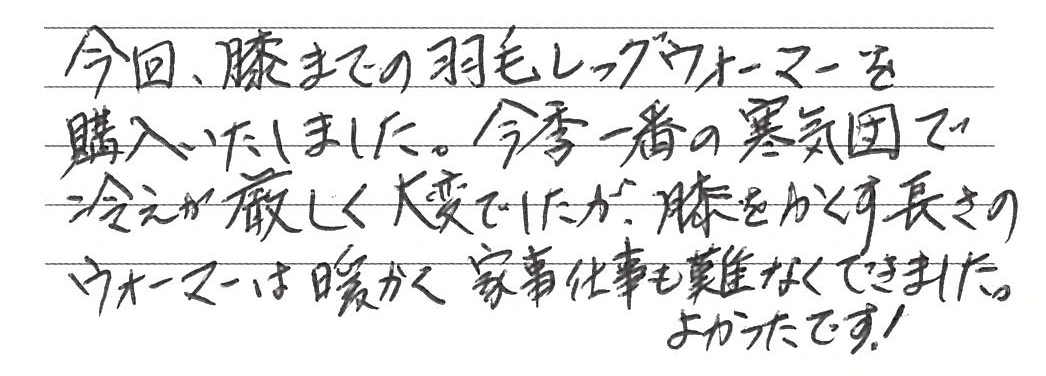 今回、膝までの羽毛レッグウォーマーを
購入いたしました。今季一番の寒気団で
冷えが厳しく大変でしたが、膝をかくす長さの
ウォーマーは暖かく家事仕事も難なくできました。
よかったです!